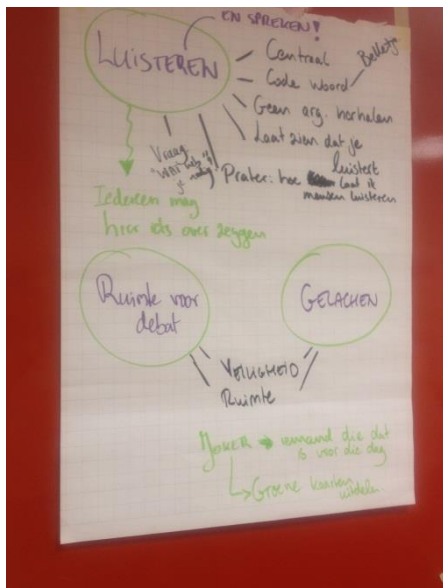 EN SPREKEN!
LUISTEREN
Centraal
Code woord
Belletje
Geen arg. herhalen
Laat zien dat je luistert
Vraag: "Wat heb je nodig"?
Prater: hoe laat ik mensen luisteren
Iedereen mag
hier iets over zeggen
Ruimte voor
debat
GELACHEN
VEILIGHEID
Ruimte
JOKER → iemand die dat
is voor die dag
↳ Groene kaarten
uitdelen